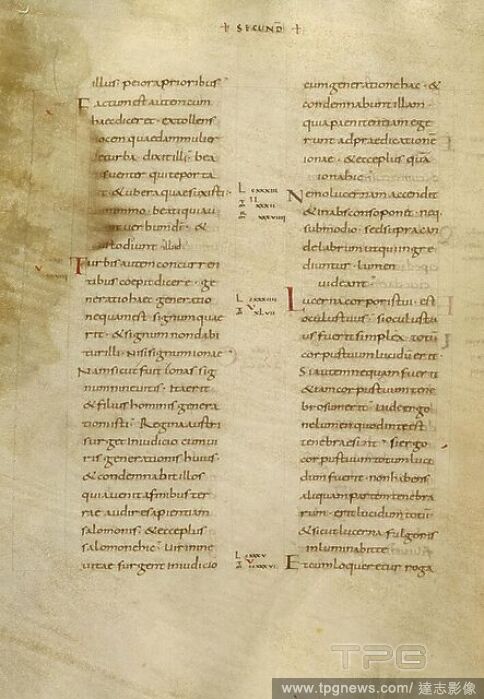 + SECUND +
illius peiora prioribus
Factum est autem cum
haec diceret · extollens
vocem quaedam mulier
de turba · dixit illi · bea
tus venter qui te porta
vit · & ubera quae suxisti ·
beati qui au
diunt verbum d̄i · &
custodiunt illud
Turbis autem concurren
tibus coepit dicere · ge
neratio haec generatio
nequam est signum quae
rit · & signum non dabi
tur illi · Nisi signum ionae
Nam sicut fuit Ionas sig
num ninevitis · Ita erit
& filius hominis genera
tioni isti · Regina austri
surg& In iudicio cum vi
ris generationis huius ·
& condemnabit illos
quia venit a finibus ter
rae audire sapientiam
salomonis · & ecce plus
salomone hic · Viri nine
vitae surgent In iudicio
cum generatione hac · &
condemnabunt illam
quia paenitentiam ege
runt ad praedicationē
ionae · & ecce plus quā
iona hic
Nemo lucernam accendit
& In abscons o ponit · neq·
sub modio · sed supra can
delabrum ut qui ingre
diuntur · lumen
videant
Lucerna corporis tui · est
oculus tuus · si oculus tu
us fuerit simplex · totū
corpus tuum lucidū erit ·
Si autem nequam fuerit
&iam corpus tuum tene
brosum erit · Vide ergo
ne lumen quod In te est
tenebrae sint · Si ergo
corpus tuum totum luci
dum fuerit · non habens
aliquam partem tenebra
rum · erit lucidum totū
& sicut lucerna fulgoris
inluminabit te
Et cum loqueretur roga
TPG
www.tpgnews.com/ 達志影像